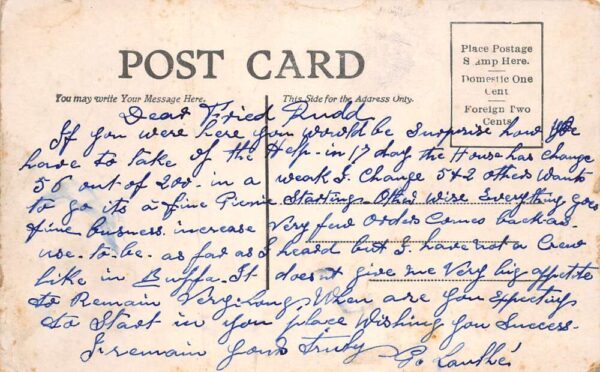 POST CARD
Place Postage
Stamp Here.
Domestic One
Cent
Foreign Two
Cents
You may write Your Message Here.
This Side for the Address Only.
Dear Fried Rudd
If you were here you would be Surprise how We
have to take of the Help - in 17 day the House has Change
56 out of 200 - in a weak I. Change 5 & 2 others wants
to go its a fine Picnic Starting Other wise Everything goes
fine business. increase Very few Orders Comes back as
use. to. be. as fad as I heard but I. have not a Crew
like in Buffa. It does it give me Very big appetite
to Remain Very Long. When are you Expecting
to Start in you place Wishing you Success -
I remain yours truly